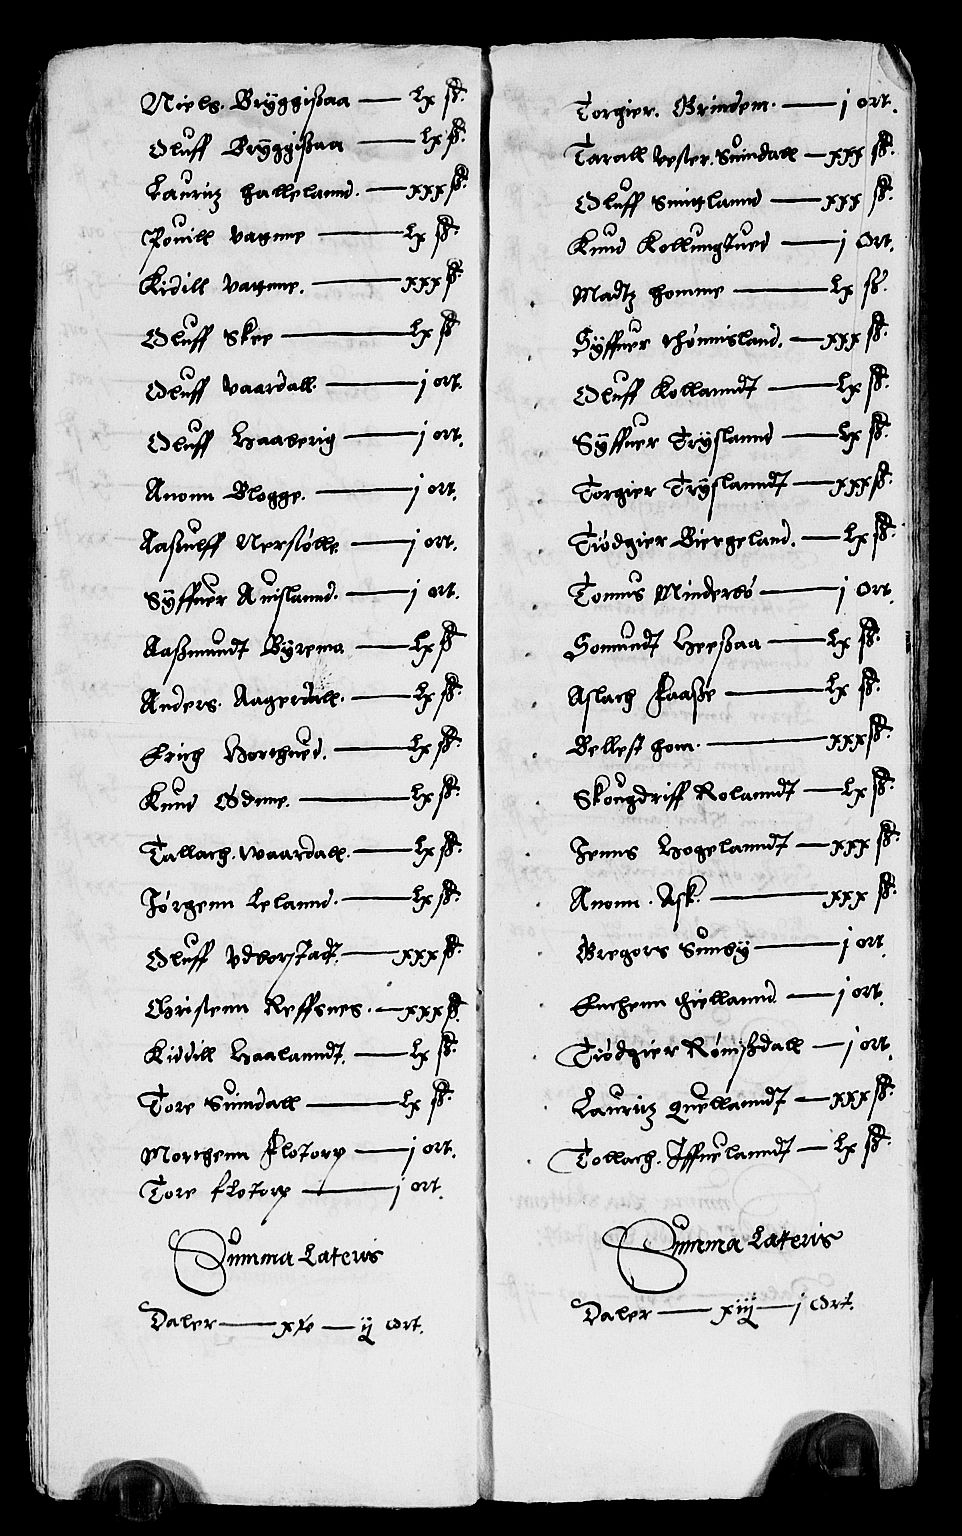 Niels. Brÿggißaa — Lx ß.
Oluff Brÿggißaa — Lx ß.
Lauritz Hallelannd. — xxx ß.
Pouill Vagnne — Lx ß.
Kidill Vagnne. — xxx ß.
Oluff Skee — Lx ß
Oluff Vaardall. — j ort.
Oluff Haaberig — j ort.
Anonn Blogge. — j ort.
Aaßulff Nerstølle — j ort.
Sÿffuer Auislannd. — j ort.
Aaßmundt Bÿrema — Lx ß
Anders. Aagerdall. — Lx ß.
Erich Horthued. — Lx ß.
Knud Ødnne. — Lx ß.
Tallach. Waardall. — Lx ß.
Jørgenn Lelannd. — Lx ß.
Oluff Vdborstadt. — xxx ß.
Christenn Reffsnes. — xxx ß.
Kiddill Haalanndt. — Lx ß.
Tore Suindall — Lx ß.
Morthenn Flotorp — j ort.
Tore Flotorp — j ort.
Summa Lateris
Daler — xv — ij ort.
Torgier. Grindem. — j ort.
Tarall Vester. Suindall — xxx ß.
Oluff Smiglannd — xxx ß.
Knud Kollungtued — j ort.
Madtz Homme — Lx ß.
Sÿffuer Thønnisland. — xxx ß.
Oluff Kollanndt — Lx ß.
Sÿffuer Trÿslannd — Lx ß.
Torgier Trÿslanndt — xxx ß.
Tiødgier Biergeland. — Lx ß.
Tomus Minderbø — j ort.
Gomundt Heeßaa — Lx ß.
Aslach Faaße — Lx ß.
Bellest Hom. — xxx ß.
Skougdriff Rolanndt — Lx ß.
Jenns Hogelanndt — xxx ß.
Anonn. Ask. — xxx ß.
Gregors Sunbÿ — j ort.
Enchenn Giellannd. — j ort.
Tiødgier Rømißdall — j ort.
Lauritz Quellanndt — xxx ß.
Tollach. Iffuelanndt — Lx ß.
Summa Lateris
Daler — xiij — j ort.